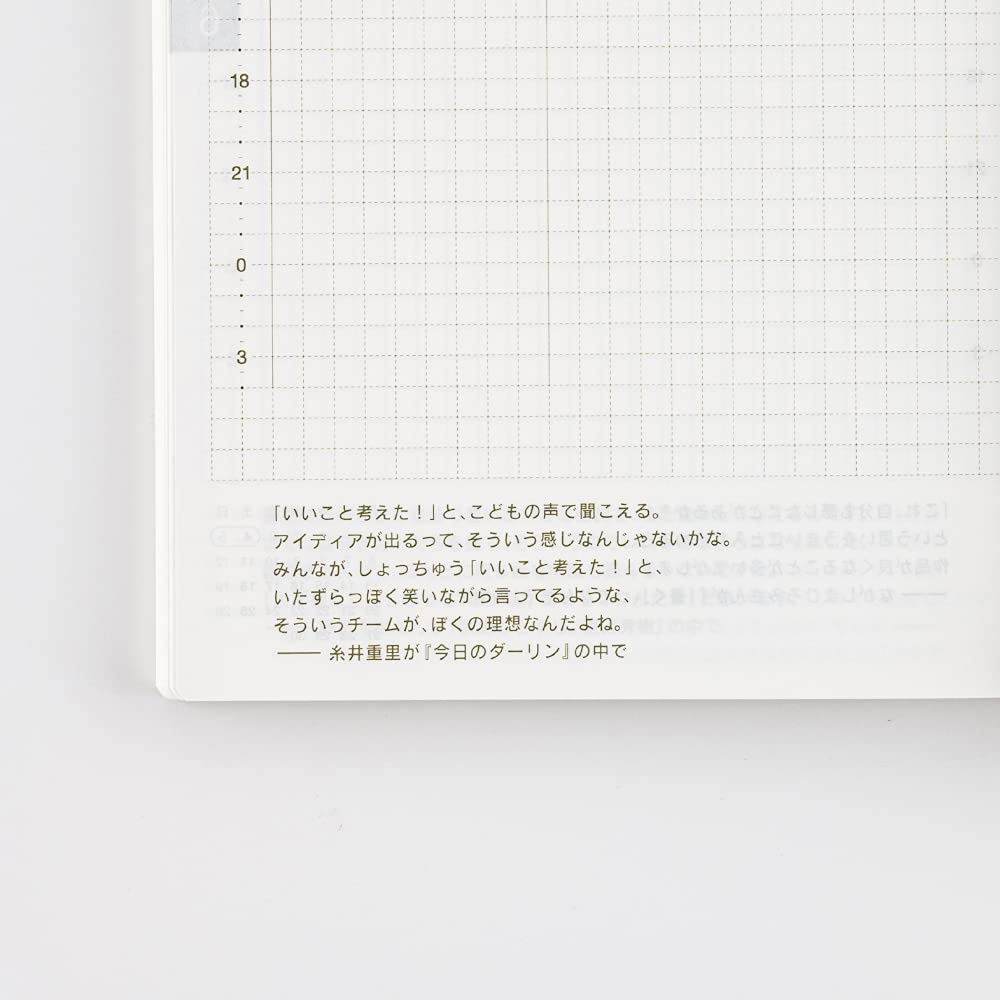 6
18
21
0
3
「いいこと考えた！」と、こどもの声で聞こえる。
アイディアが出るって、そういう感じなんじゃないかな。
みんなが、しょっちゅう「いいこと考えた！」と、
いたずらっぽく笑いながら言ってるような、
そういうチームが、ぼくの理想なんだよね。
―― 糸井重里が『今日のダーリン』の中で